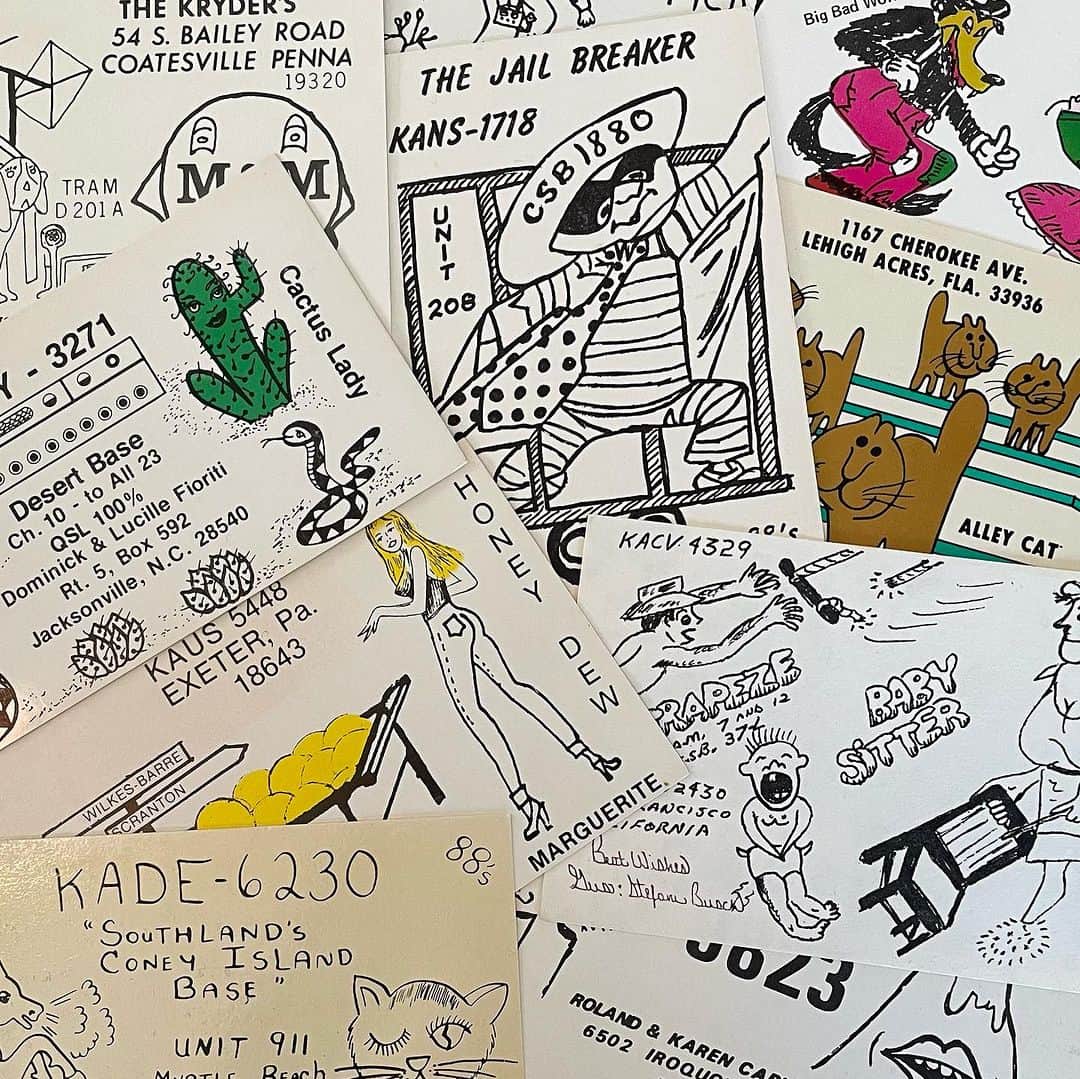 THE KRYDER'S
54 S. BAILEY ROAD
COATESVILLE PENNA
19320
TRAM
D201A
M&M
THE JAIL BREAKER
KANS-1718
CSB1880
UNIT
208
88's
Big Bad
1167 CHEROKEE AVE.
LEHIGH ACRES, FLA. 33936
ALLEY CAT
Y - 3271
Cactus Lady
Desert Base
Ch. 10 - to All 23
QSL 100%
Dominick & Lucille Fioriti
Rt. 5, Box 592
Jacksonville, N.C. 28540
HONEY
DEW
KAUS 5448
EXETER, Pa.
18643
WILKES-BARRE
SCRANTON
MARGUERITE
KACV 4329
RAPEZE
7 AND 12
BABY
SITTER
2430
Best Wishes
KADE-6230
88's
"SOUTHLAND'S
CONEY ISLAND
BASE"
UNIT 911
MYRTLE BEACH
3623
ROLAND & KAREN
6502